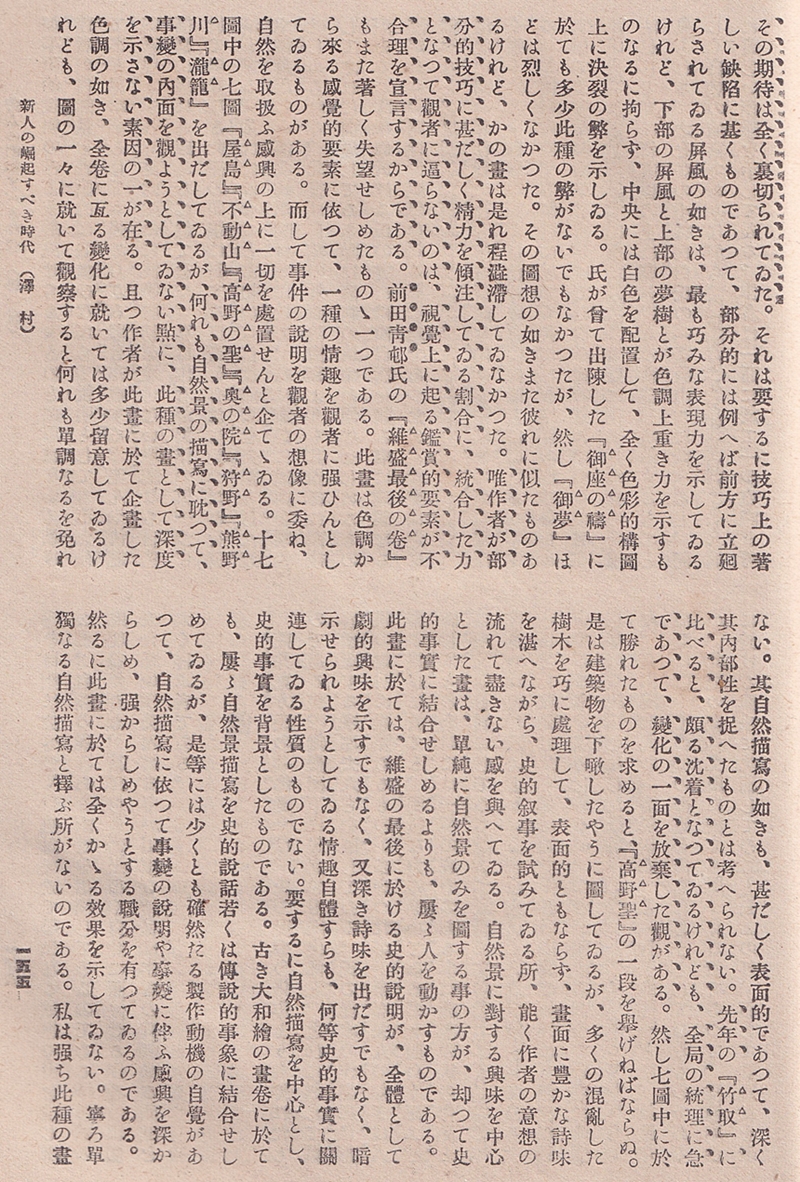 その期待は全く裏切られてゐた。それは要するに技巧上の著
しい缺陷に基くものであつて、部分的には例へば前方に立廻
らされてゐる屏風の如きは、最も巧みな表現力を示してゐる
けれど、下部の屏風と上部の夢樹とが色調上重き力を示すも
のなるに拘らず、中央には白色を配置して、全く色彩的構圖
上に決裂の弊を示しゐる。氏が曾て出陳した『御座の禱』に
於ても多少此種の弊がないでもなかつたが、然し『御夢』ほ
どは烈しくなかつた。その圖想の如きまた彼れに似たものあ
るけれど、かの畫は是れ程澁滯してゐなかつた。唯作者が部
分的技巧に甚だしく精力を傾注してゐる割合に、統合した力
となつて觀者に逼らないのは、視覺上に起る鑑賞的要素が不
合理を宣言するからである。前田青邨氏の『維盛最後の卷』
もまた著しく失望せしめたものゝ一つである。此畫は色調か
ら來る感覺的要素に依つて、一種の情趣を觀者に强ひんとし
てゐるものがある。而して事件の說明を觀者の想像に委ね、
自然を取扱ふ感興の上に一切を處置せんと企てゝゐる。十七
圖中の七圖『屋島』『不動山』『高野の聖』『奥の院』『狩野』『熊野
川』『瀧籠』を出だしてゐるが、何れも自然景の描寫に耽つて、
事變の内面を觀ようとしてゐない點に、此種の畫として深度
を示さない素因の一が在る。且つ作者が此畫に於て企畫した
色調の如き、全卷に亙る變化に就いては多少留意してゐるけ
れども、圖の一々に就いて觀察すると何れも單調なるを免れ
新人の崛起すべき時代（澤村）
ない。其自然描寫の如きも、甚だしく表面的であつて、深く
其内部性を捉へたものとは考へられない。先年の『竹取』に
比べると、頗る沈着となつてゐるけれども、全局の統理に急
であつて、變化の一面を放棄した觀がある。然し七圖中に於
て勝れたものを求めると、『高野聖』の一段を擧げねばならぬ。
是は建築物を下瞰したやうに圖してゐるが、多くの混亂した
樹木を巧に處理して、表面的ともならず、畫面に豐かな詩味
を湛へながら、史的叙事を試みてゐる所、能く作者の意想の
流れて盡きない感を與へてゐる。自然景に對する興味を中心
とした畫は、單純に自然景のみを圖する事の方が、却つて史
的事實に結合せしめるよりも、屢〻人を動かすものである。
此畫に於ては、維盛の最後に於ける史的說明が、全體として
劇的興味を示すでもなく、又深き詩味を出だすでもなく、暗
示せられようとしてゐる情趣自體すらも、何等史的事實に關
連してゐる性質のものでない。要するに自然描寫を中心とし、
史的事實を背景としたものである。古き大和繪の畫卷に於て
も、屢〻自然景描寫を史的說話若くは傳說的事象に結合せし
めてゐるが、是等には少くとも確然たる製作動機の自覺があ
つて、自然描寫に依つて事變の說明や事變に伴ふ感興を深か
らしめ、强からしめやうとする職分を有つてゐるのである。
然るに此畫に於ては全くかゝる效果を示してゐない。寧ろ單
獨なる自然描寫と擇ぶ所がないのである。私は强ち此種の畫
一五五